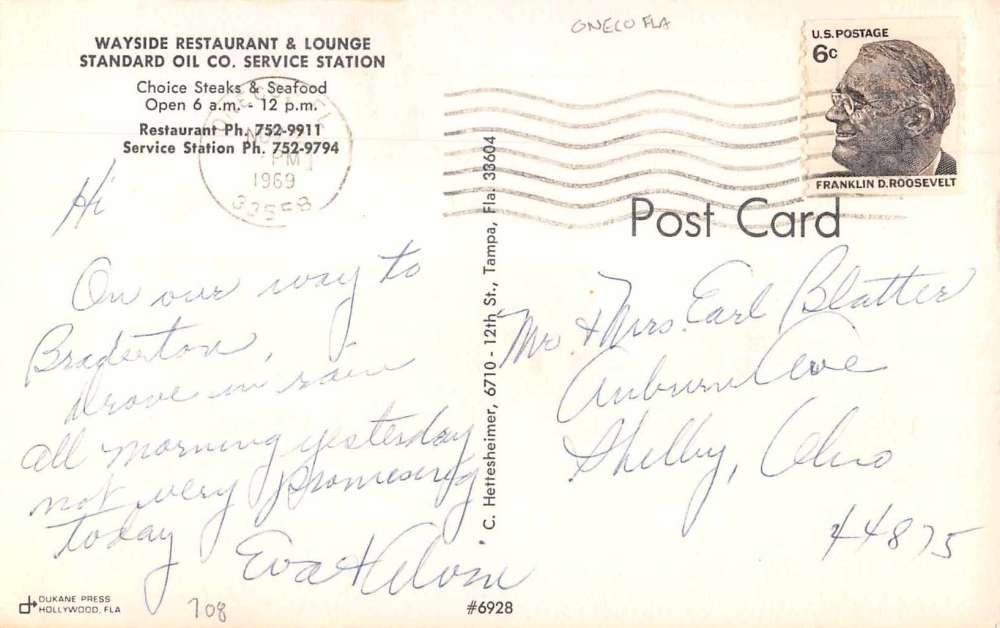 ONECO FLA
WAYSIDE RESTAURANT & LOUNGE
STANDARD OIL CO. SERVICE STATION
Choice Steaks & Seafood
Open 6 a.m. - 12 p.m.
Restaurant Ph. 752-9911
Service Station Ph. 752-9794
ONECO, FL
PM
1969
33558
U.S. POSTAGE
6c
FRANKLIN D. ROOSEVELT
Post Card
Hi
On our way to
Bradenton,
drove in rain
all morning yesterday
not very promising
today
Eva & Alvin
C. Hettesheimer, 6710 - 12th St., Tampa, Fla. 33604
Mr. & Mrs. Earl Blatter
Auburn Ave
Shelby, Ohio
44875
DUKANE PRESS
HOLLYWOOD, FLA
708
#6928